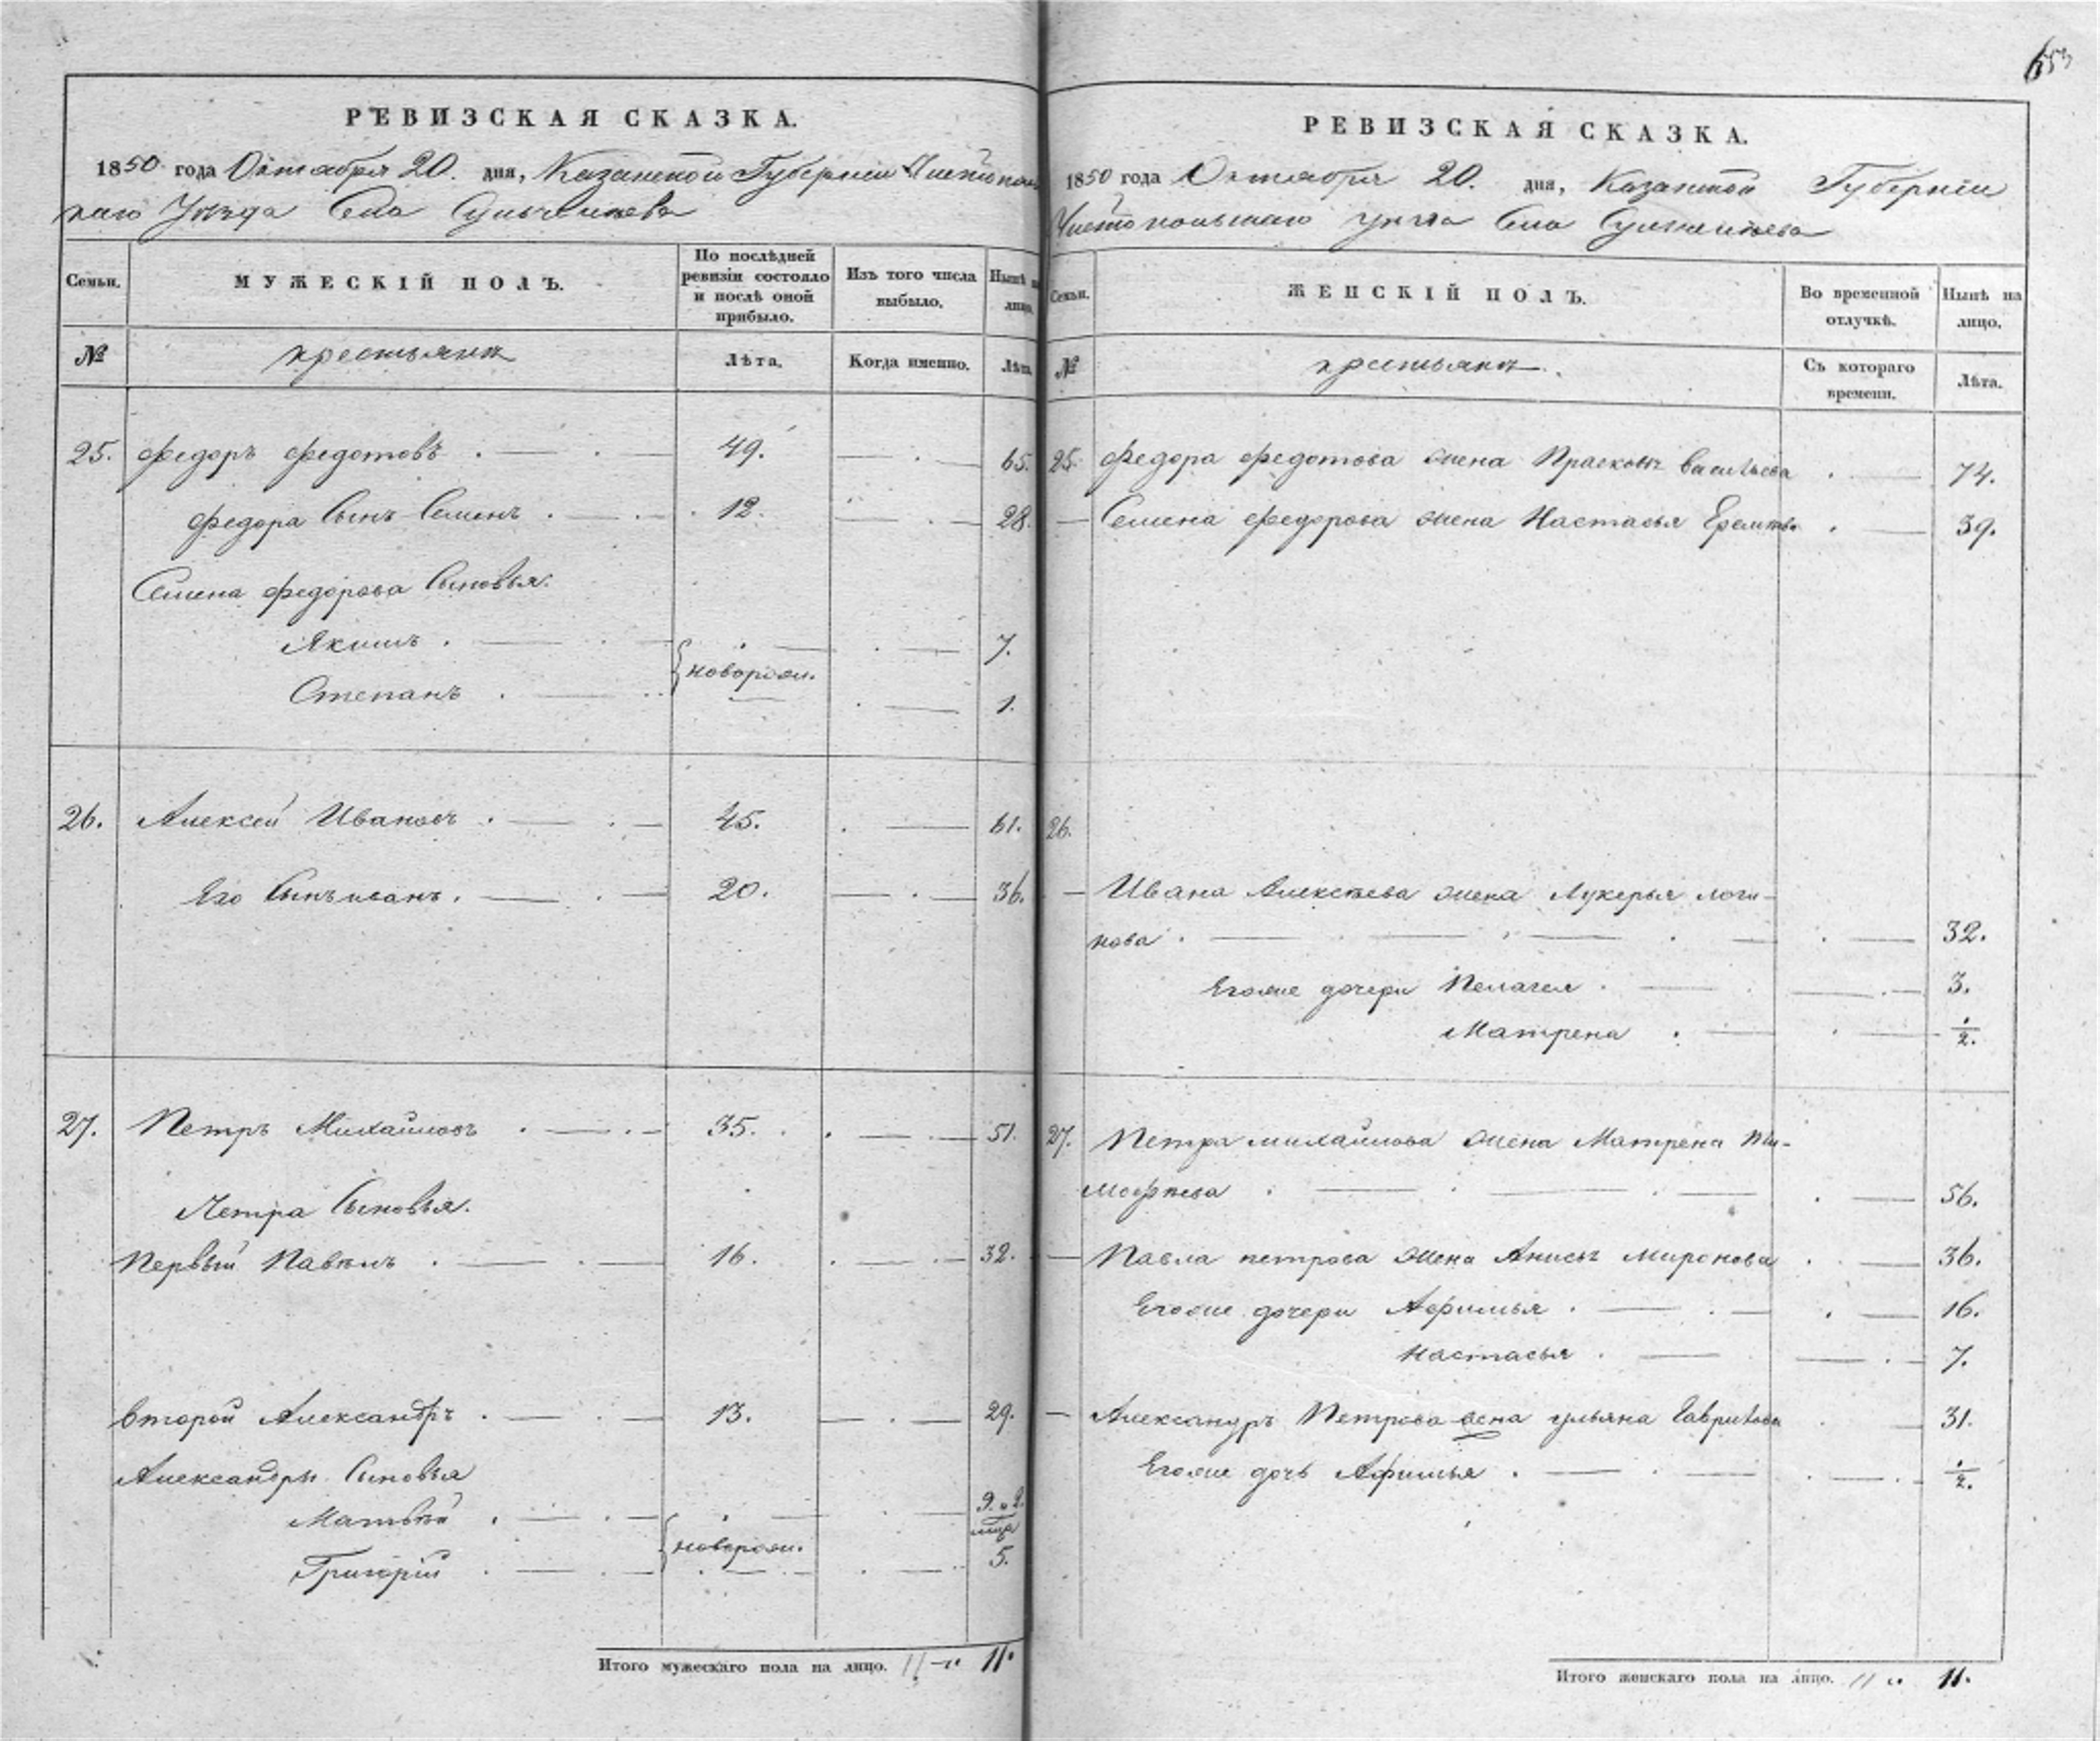 653
РЕВИЗСКАЯ СКАЗКА.
1850 года Октября 20. дня, Казанской Губернии Чистополь
скаго Уѣзда Села
Семьи.
МУЖЕСКІЙ ПОЛЪ.
По послѣдней ревизіи состояло и послѣ оной прибыло.
Изъ того числа выбыло.
Нынѣ на лицо.
№
крестьянъ
Лѣта.
Когда именно.
Лѣта.
25. Федоръ Федотовъ . 49. 65.
Федора Сынъ Семенъ . 12. 28.
Семена Федорова Сыновья.
Якимъ . новорож. 7.
Степанъ . 1.
26. Алексей Ивановъ . 45. 61.
Его Сынъ иванъ . 20. 36.
27. Петръ Михайловъ . 35. 51.
Петра Сыновья.
Первый Павелъ . 16. 32.
Второй Александръ . 13. 29.
Александры Сыновья
Матвѣй . новорож. 9. и 2. мца
Григорій . 5.
Итого мужескаго пола на лицо. 11 11.
РЕВИЗСКАЯ СКАЗКА.
1850 года Октября 20. дня, Казанской Губерніи
Чистопольскаго уѣзда Села
Семьи.
ЖЕНСКІЙ ПОЛЪ.
Во временной отлучкѣ.
Нынѣ на лицо.
№
крестьянъ.
Съ котораго времени.
Лѣта.
25. Федора Федотова жена Прасковья Васильева . 74.
Семена Федорова жена Настасья . 39.
26.
Ивана Алексѣева жена Лукерья Логи-
нова . 32.
Его же дочери Пелагея . 3.
Матрена . 1/2.
27. Петра михайлова жена Матрена Ти-
мофѣева . 56.
Павла петрова жена Анисья Миронова . 36.
Его же дочери Афимья . 16.
Настасья . 7.
Александръ Петрова жена ульяна Гаврилова . 31.
Его же дочь Афимья . 1/2.
Итого женскаго пола на лицо. 11 11.